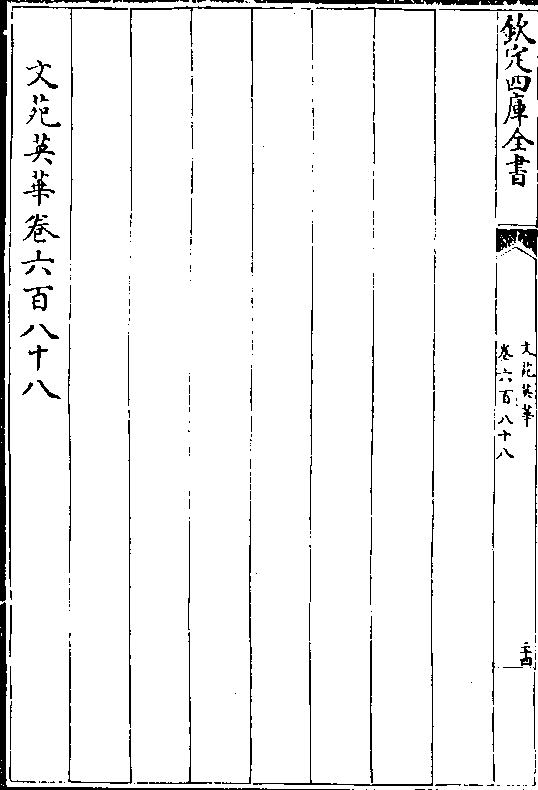 欽定四庫全書
文苑英華
卷六百八十八
二十四
文苑英華卷六百八十八